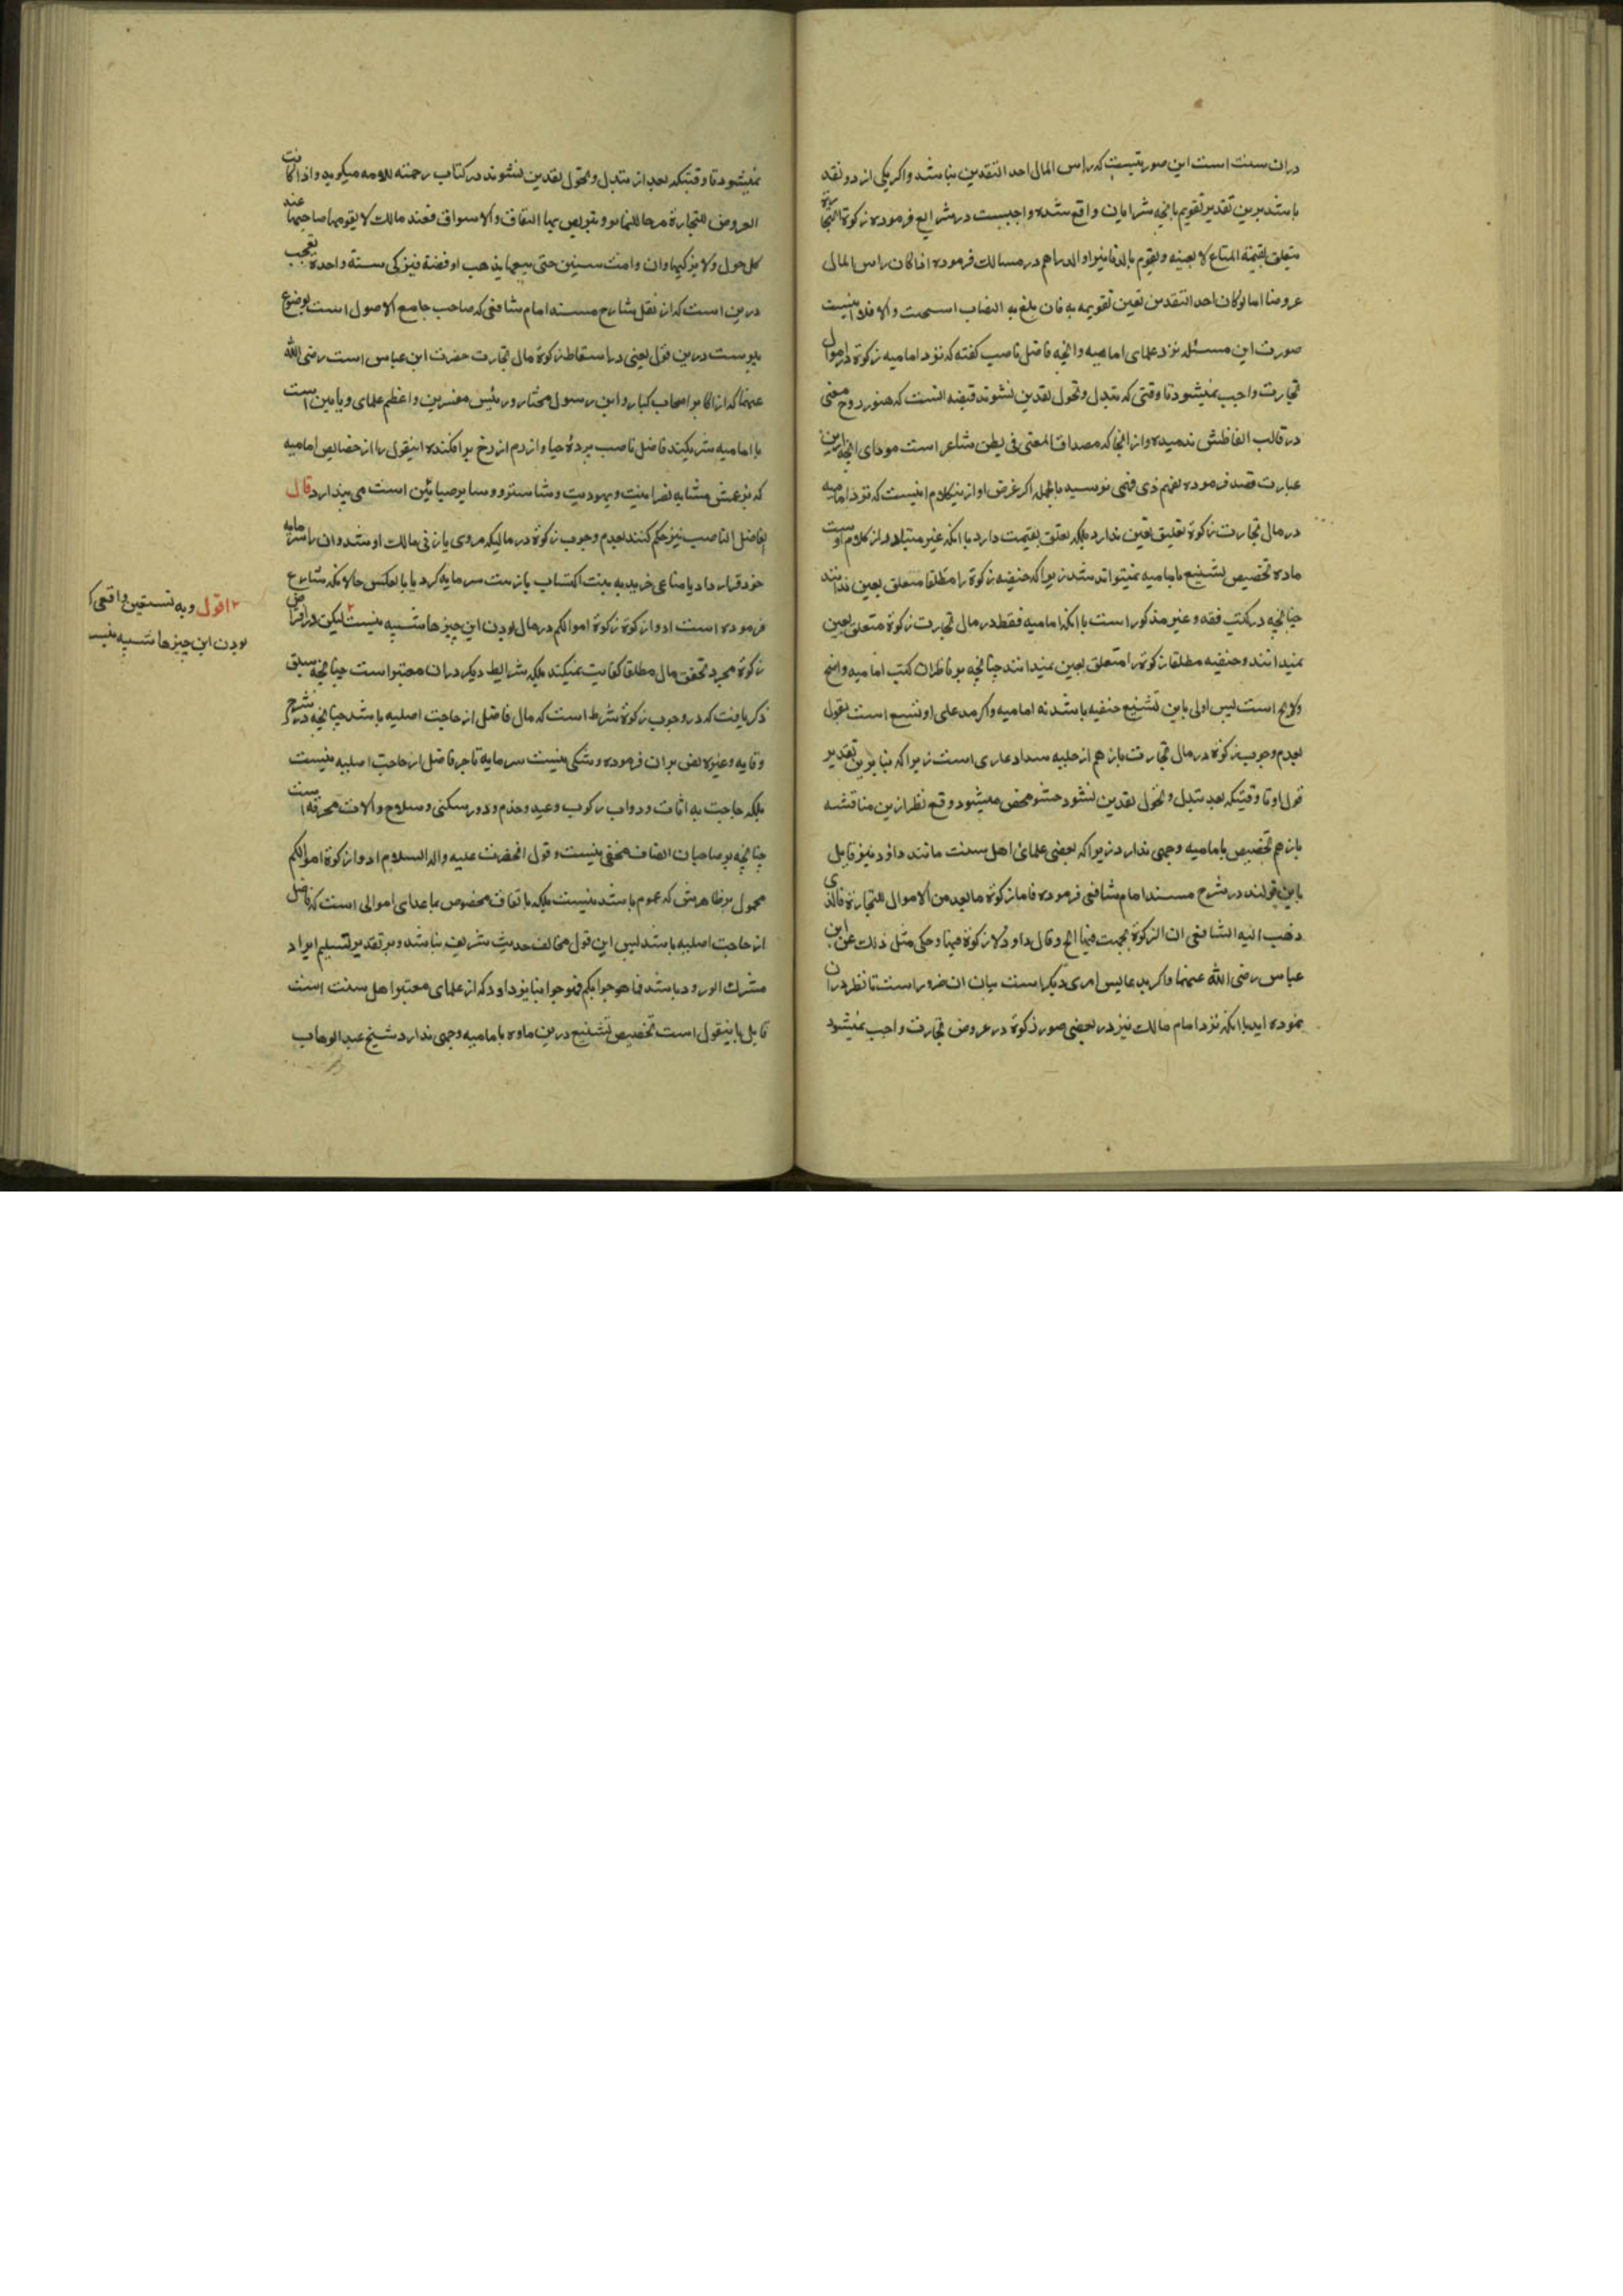 دران سنت است این صورتیست که راس المال احد النقدین نباشد و اکر یکی از دو نقد
باشد برین تقدیر تقویم بانچه شرا بان واقع شده واجبست در شرایع فرموده زکوة التجارة
متعلق بقیمة المتاع لا بعینه و یقوم بالدنانیر او الدراهم در مسالک فرموده اذا کان راس المال
عروضا اما لو کان احد النقدین تعین تقویمه به فان بلغ به النصاب استحبت و الا فلا اینست
صورت این مسئله نزد علمای امامیه و انچه فاضل ناصب کفته که نزد امامیه زکوة در اموال
تجارت واجب نمیشود تا وقتی که تبدل و تحول نقدین نشوند قضیه ایست که هنوز روح معنی
در قالب الفاظش ندمیده و از انجا که مصداق المعنی فی بطن شاعر است مودای انچه ازین
عبارت قصد فرموده بفهم ذی فهمی نمیرسد بالجمله اکر غرض او ازین کلام اینست که نزد امامیه
در مال تجارت زکوة تعلیق بعین ندارد بلکه تعلق بقیمت دارد با انکه غیر متبادر از کلام اوست
ماده تخصیص تشنیع بامامیه نمیتواند شد زیرا که حنفیه زکوة را مطلقا متعلق بعین ندانند
چنانچه در کتب فقه و غیر مذکور است با انکه امامیه فقط در مال تجارت زکوة متعلق بعین
نمیدانند و حنفیه مطلقا زکوة را متعلق بعین نمیدانند چنانچه بر ناظران کتب امامیه واضح
ولایح است پس اولی باین تشنیع حنفیه باشد نه امامیه و اکر مدعلی او تشنیع است بقول
بعدم وجوب زکوة در مال تجارت باز هم از حلیه سداد عاری است زیرا که بنابرین تقدیر
قول او تا وقتیکه بعد تبدل و تحول نقدین نشود حشو محض میشود و قطع نظر ازین مناقشه
باز هم تخصیص بامامیه وجهی ندارد زیرا که بعضی علمائ اهل سنت مانند داؤد نیز قایل
باین قولند در شرح مسند امام شافعی فرموده فاما زکوة ما یعد من الاموال للتجارة فالذی
ذهب الیه الشافعی ان الزکوة تجبت فیها الخ و قال داود لا زکوة فیها و حکی مثل ذلک عن ابن
عباس رضی الله عنهما و اکر مدعا یس امری دیکر است بیان ان ضرور است تا نظر دران
نموده اید با انکه نزد امام مالک نیز در بعضی صور زکوة در عروض تجارت واجب نمیشود
نمیشود تا وقتیکه بعد از تبدل و تحول نقدین نشوند در کتاب رحمته للامه میکوید و اذا کانت
العروض للتجارة مرجا للنما بو و یتربص بها النفاق و الاسواق فعند مالک لا یقومها صاحبها عند
کل حول ولا یزکیها و ان دامت سنین حتی یبیعها بذهب او فضة فیزکی سنة واحدة تعجب
درین است که از نقل شارح مسند امام شافعی که صاحب جامع الاصول است بوضوح
پیوست درین قول یعنی در اسقاط زکوة مال تجارت حضرت ابن عباس است رضی الله
عنهما که از اکابر اصحاب کبار و ابن رسول مختار و رئیس مفسرین و اعظم علمای ربانیین است
با امامیه شریکند فاضل ناصب پردۀ حیا و ازرم از رخ بر افکنده اینقول را از خصایص امامیه
که بزعمش مشابه نصرانیت و یهودیت و شاستر و و سایر صیابئین است می پندارد قال
الفاضل الناصب نیز حکم کنند بعدم وجوب زکوة در مالیکه مردی یا زنی مالک او شد و ان را سرمایه
خود قرار داد یا متاعی خرید به نیت اکتساب یا زینت سرمایه کرد یا بالعکس حالانکه شارع
فرموده است ادوا زکوة زکوة اموالکم در مال بودن این چیزها شبهه نیست ۲ لیکن در افتراض
زکوة مجرد تحقق مال مطلقا کفایت نمیکند بلکه شرایط دیکر دران معتبر است چنانچه سبق
ذکر یافت که در وجوب زکوة شرط است که مال فاضل از حاجت اصلیه باشد چنانچه در شرح
وقایه و غیره نص بران فرموده و شکی نیست سرمایه تاجر فاضل از حاجت اصلیه نیست
بلکه حاجت به اثاث و دواب رکوب و عبید و خدم و دور سکنی و سلاح و الات محترفه است
چنانچه بر صاحبان انصاف مخفی نیست و قول انحضرت علیه و اله السلام ادوا زکوة اموالکم
محمول بر ظاهرش که عموم باشد نیست بلکه باتفاق مخصوص بماعدای اموالی است که فاضل
از حاجت اصلیه باشد پس این قول مخالف حدیث شریف نباشد و بر تقدیر تسلیم ایراد
مشرک الورود باشد فما هو جوابکم فهو جوابنا نیز داود که از علمای معتبر اهل سنت است
قایل باینقول است تخصیص تشنیع درین ماده بامامیه وجهی ندارد شیخ عبد الوهاب
۲ اقول و به نستعین واقعی که
بودن این چیزها شبهه نیست